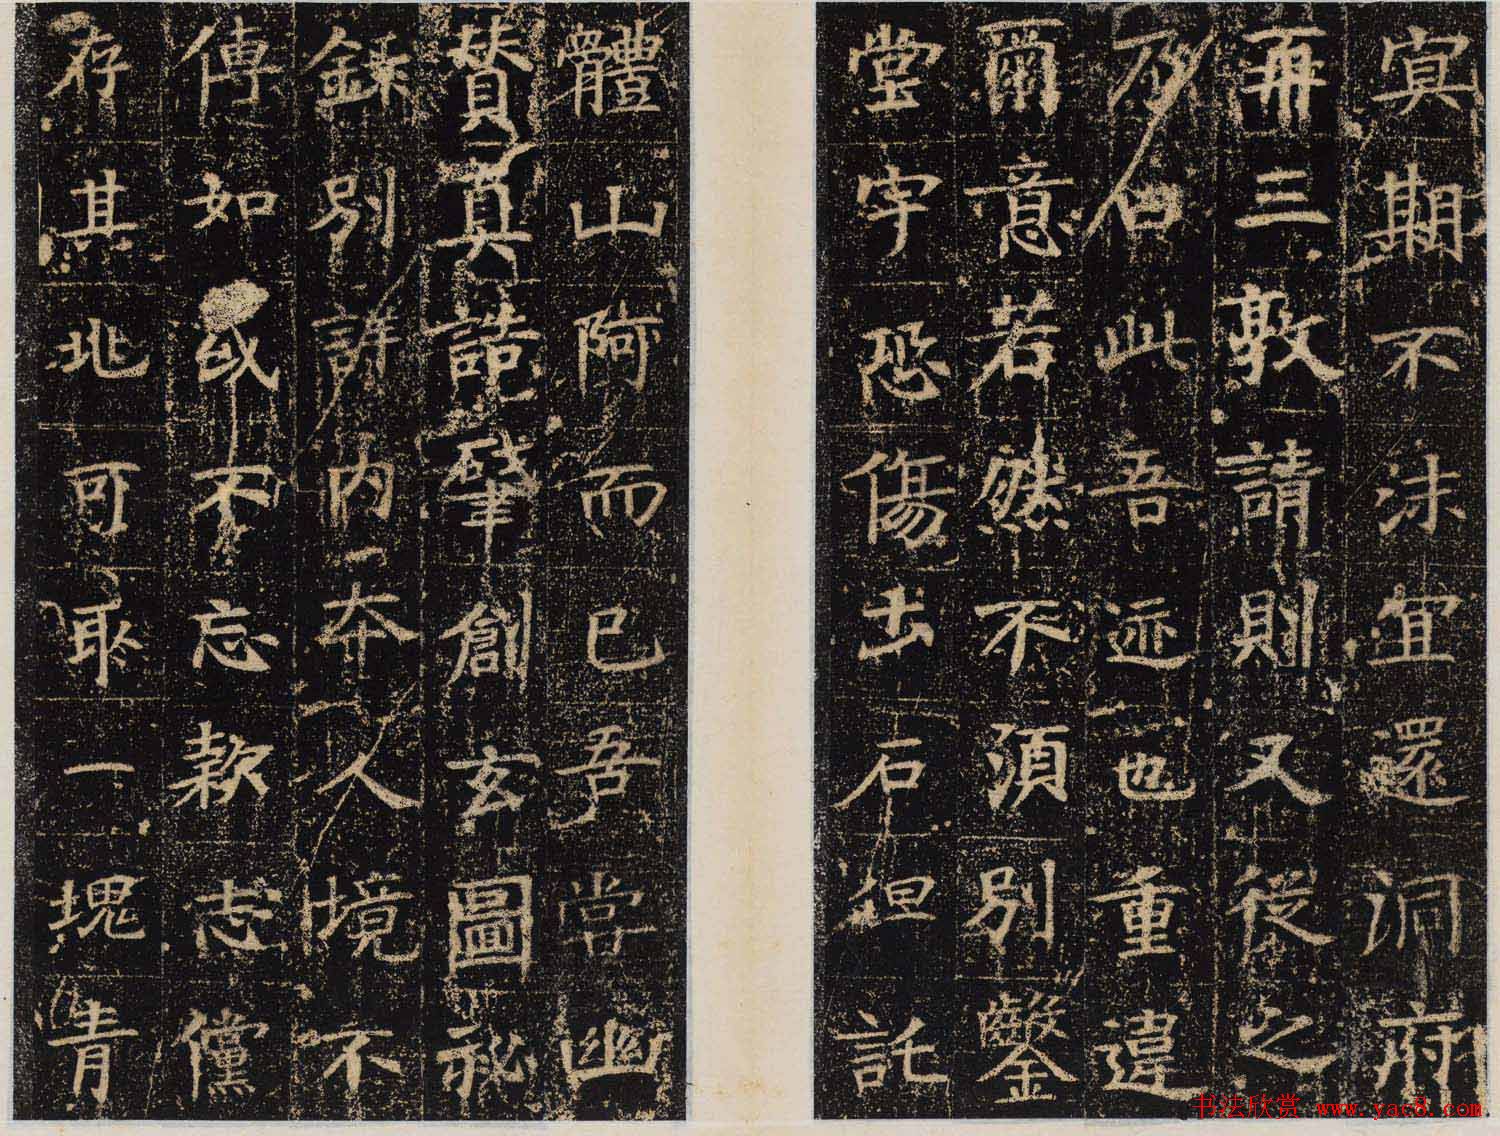 冥期不沬宜還洞府
再三敦請則又從之
乃曰此吾迹也重違
爾意若然不須別鑿
堂宇恐傷土石但託
體山阿而已吾嘗幽
贊真誥肇創玄圖秘
錄別許內夲人境不
傳如或不忘款志儻
存其兆可取一塊青
书法欣赏 www.yac8.com